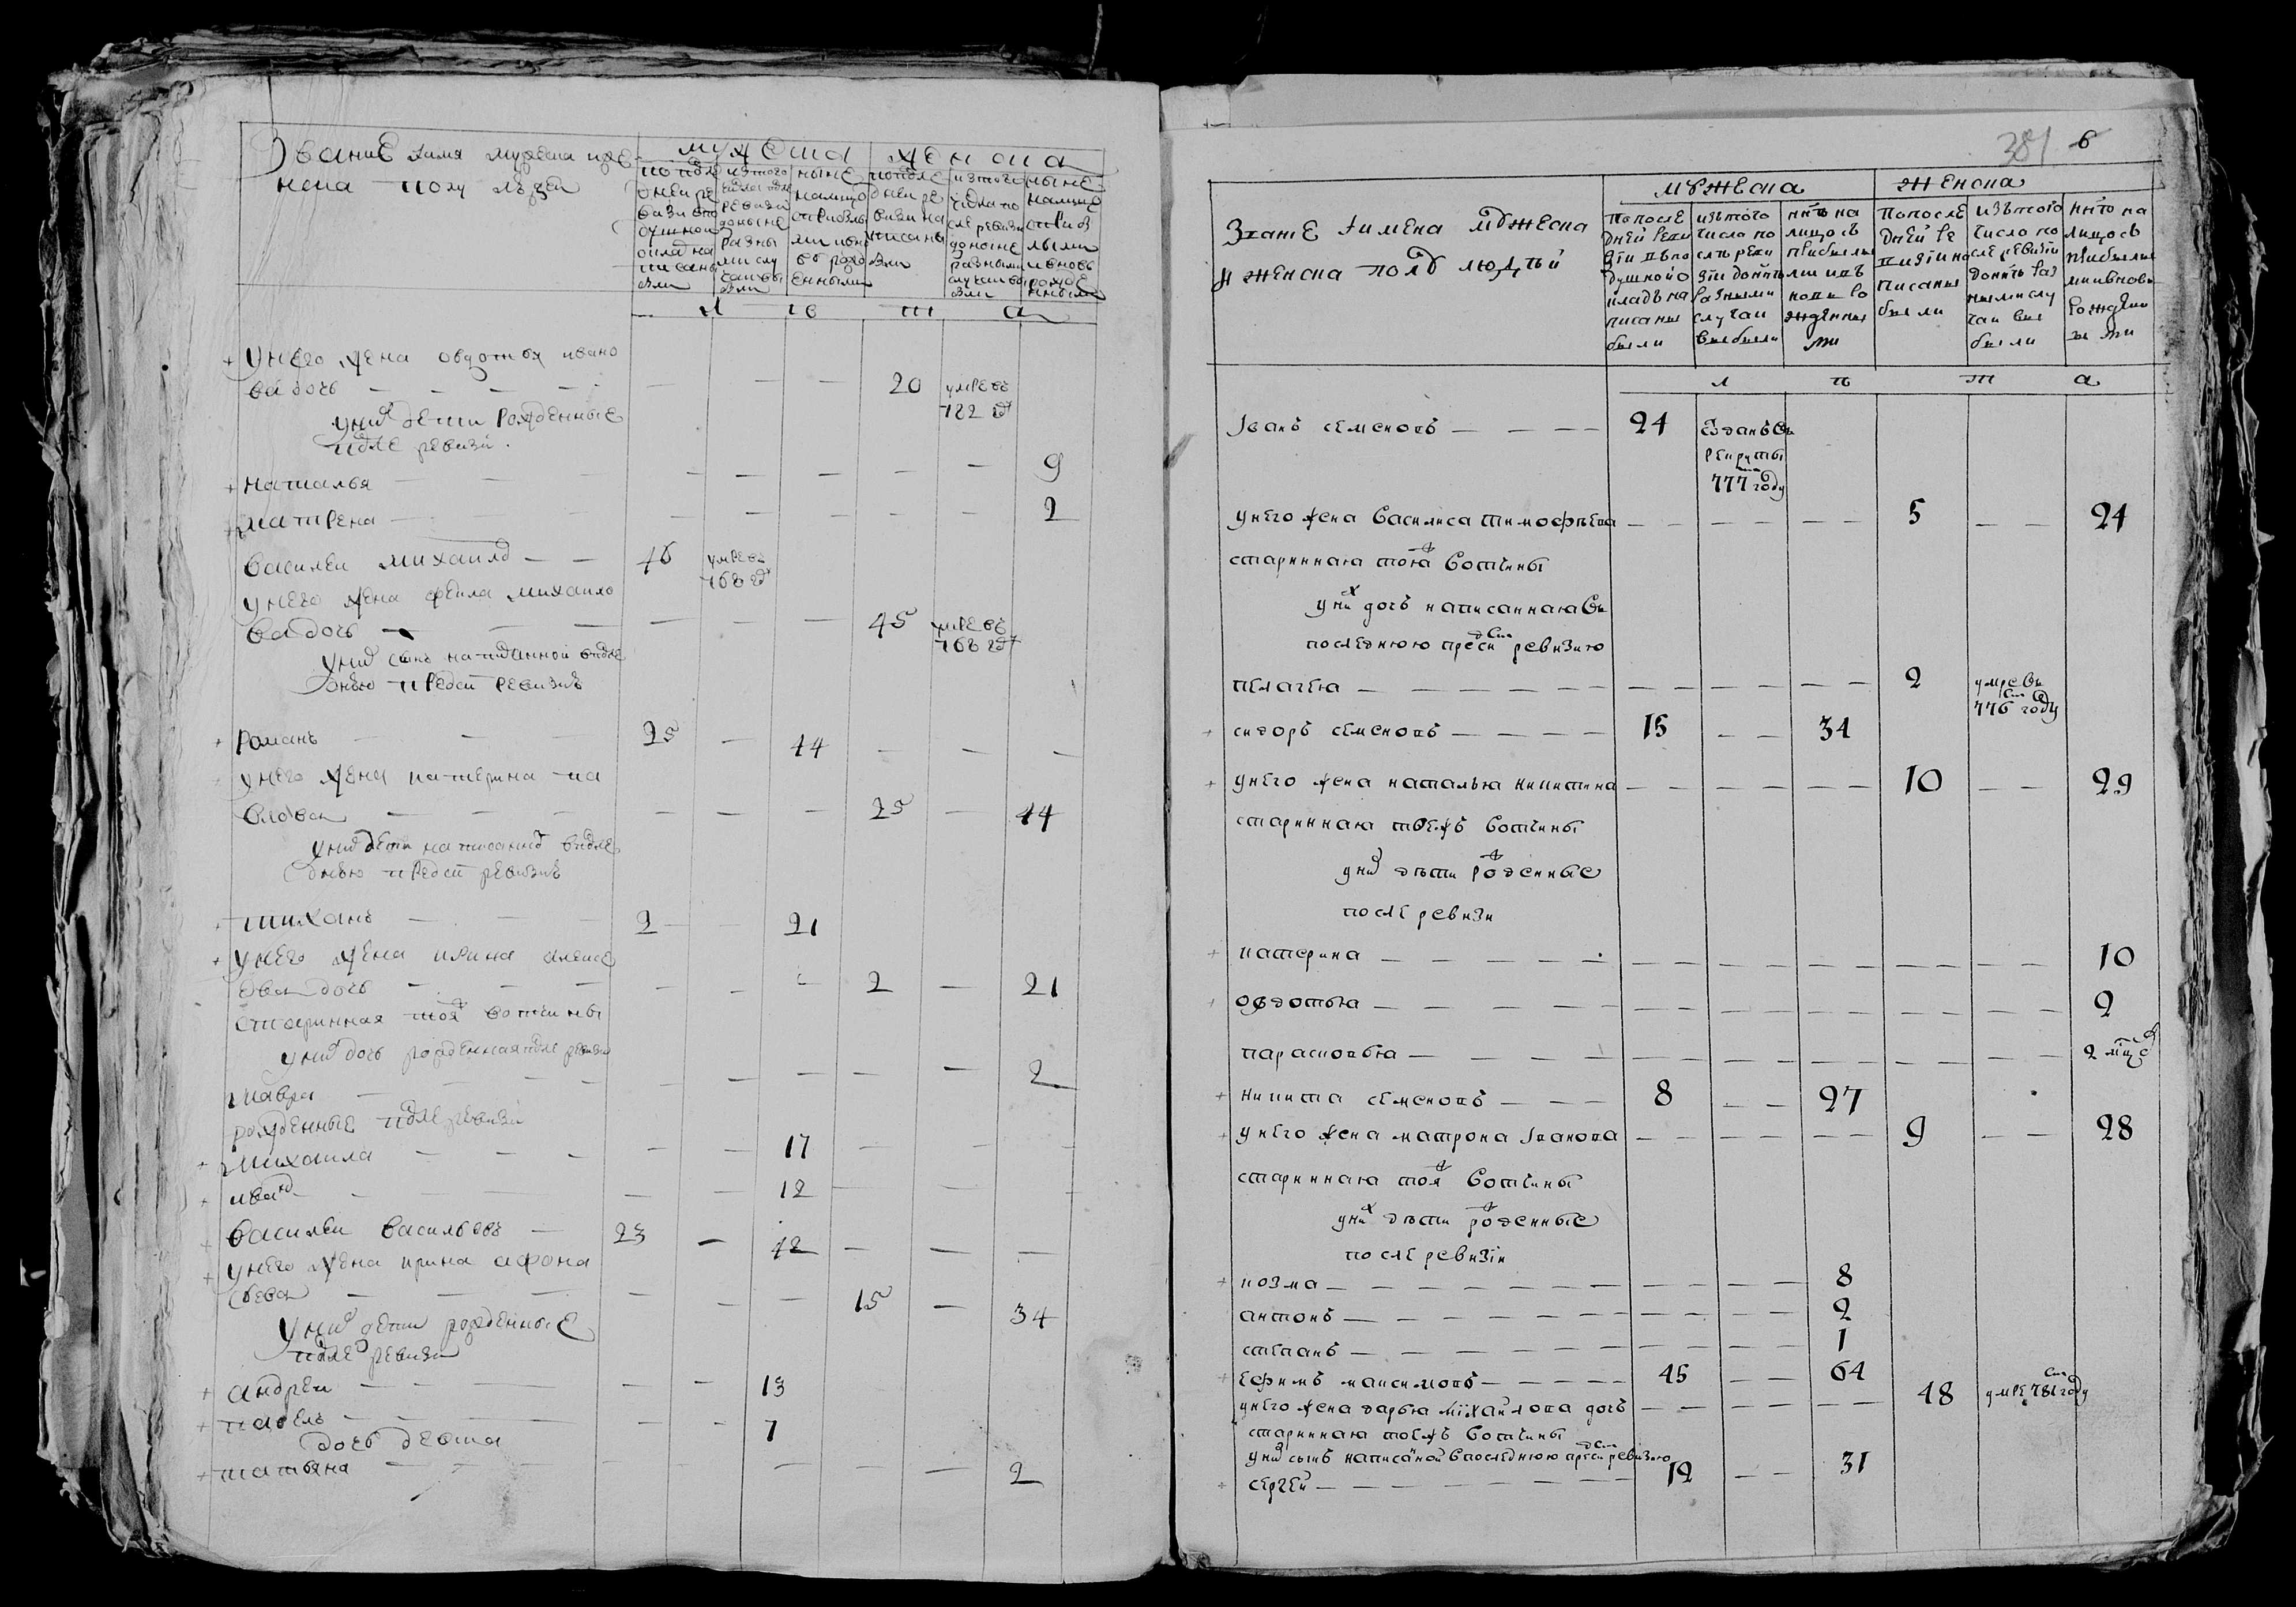 Звание имя мужеска и же
нска полу людей
мужеска
женска
по после
дней ре
визи в по
душной
оклад на
писаны
были
из того
числа после
ревизи
доныне
разны
ми слу
чаи вы
были
ныне
налицо
с прибылы
ми и внов
ь рож
енными
по после
дней ре
визи на
писаны
были
из того
числа по
сле ревизи
доныне
разными
случаи вы
были
ныне
налицо
с приб
лыми
и вновь
рожде
нными
л е т а
у него жена овдотья ивано
ва дочь — — — — — — — 20 умре въ
782 году
у них дети рожденные
после ревизи
наталья — — — — — — — — 9
матрена — — — — — — — 2
василеи михаилов — — 46 умре въ
768 году
у него жена фекла михаило
ва дочь — — — — — — 45 умре въ
768 году
у них сынъ написанной в после
днюю пред сей ревизиъ
романъ — — — 25 — 44 — — —
у него жена катерина па
влова — — — — — — 25 — 44
у них дети написаны в после
днюю пред сей ревизиъ
тиханъ — — — 2 — 21
у него жена ирина алексе
ева дочь — — — — — — 2 — 21
старинная тоя ж вотчины
у них дочь рожденная после ревизи
мавра — — — — — — — — 2
рожденные после ревизи
михаила — — — — — 17 — — —
иван — — — — 12 — — —
василеи васильевъ — 23 — 42 — — —
у него жена ирина афона
сьева — — — — — — 15 — 34
у них дети рожденные
после ревизи
андреи — — — — — 13
павелъ — — — — — 7
дочь девка
татьяна — — — — — — — — 2
381 6
Званïе и имена мужеска
и женска полу людѣй
мужеска
женска
По после
дней реви
зïи въ по
душной о
кладъ на
писаны
были
изъ того
числа по
слѣ реви
зïи донынѣ
разными
случаи
выбыли
нынѣ на
лицо съ
прибылы
ми и въ
новь ро
жденны
ми
По после
дней ре
визïи на
писаны
были
изъ того
число по
сле ревизïи
донынѣ раз
ными слу
чаи вы
были
нынѣ на
лицо съ
прибылы
ми и вновь
рожденн
ы ми
л ѣ т а
Iванъ семеновъ — — — — 24 отданъ въ
рекруты
777 году
у него жена василиса тимофѣева — — — — — — 5 — — 24
стариннаю тоя ж вотчины
у них дочь написаннаю въ
последнюю пред сим ревизию
пелагею — — — — — — — — — — — 2 умре въ
776 году
сидоръ семеновъ — — — — 15 — — 34
у него жена наталья никитина — — — — — — 10 — — 29
стариннаю той ж вотчины
у них дѣти рожденные
после ревизи
катерина — — — — — — — — — — — — — — 10
овдотья — — — — — — — — — — — — — — 2
парасковья — — — — — — — — — — — — — — 2 мѣсяца
никита семеновъ — — — 8 — — 27
у него жена матрона Iванова — — — — — — 9 — — 28
стариннаю тоя ж вотчины
у них дѣти рожденные
после ревизïи
козма — — — — — — — — — — 8
антонъ — — — — — — — — — — 2
степанъ — — — — — — — — — — 1
ефимъ максимовъ — — — — — 45 — — 64
у него жена дарья мïхайлова дочь — — — — — — 48 умре 781 году
стариннаю той ж вотчины
у них сынъ написаной в последнюю пред сим ревизию
сергей — — — — — — — — 12 — — 31